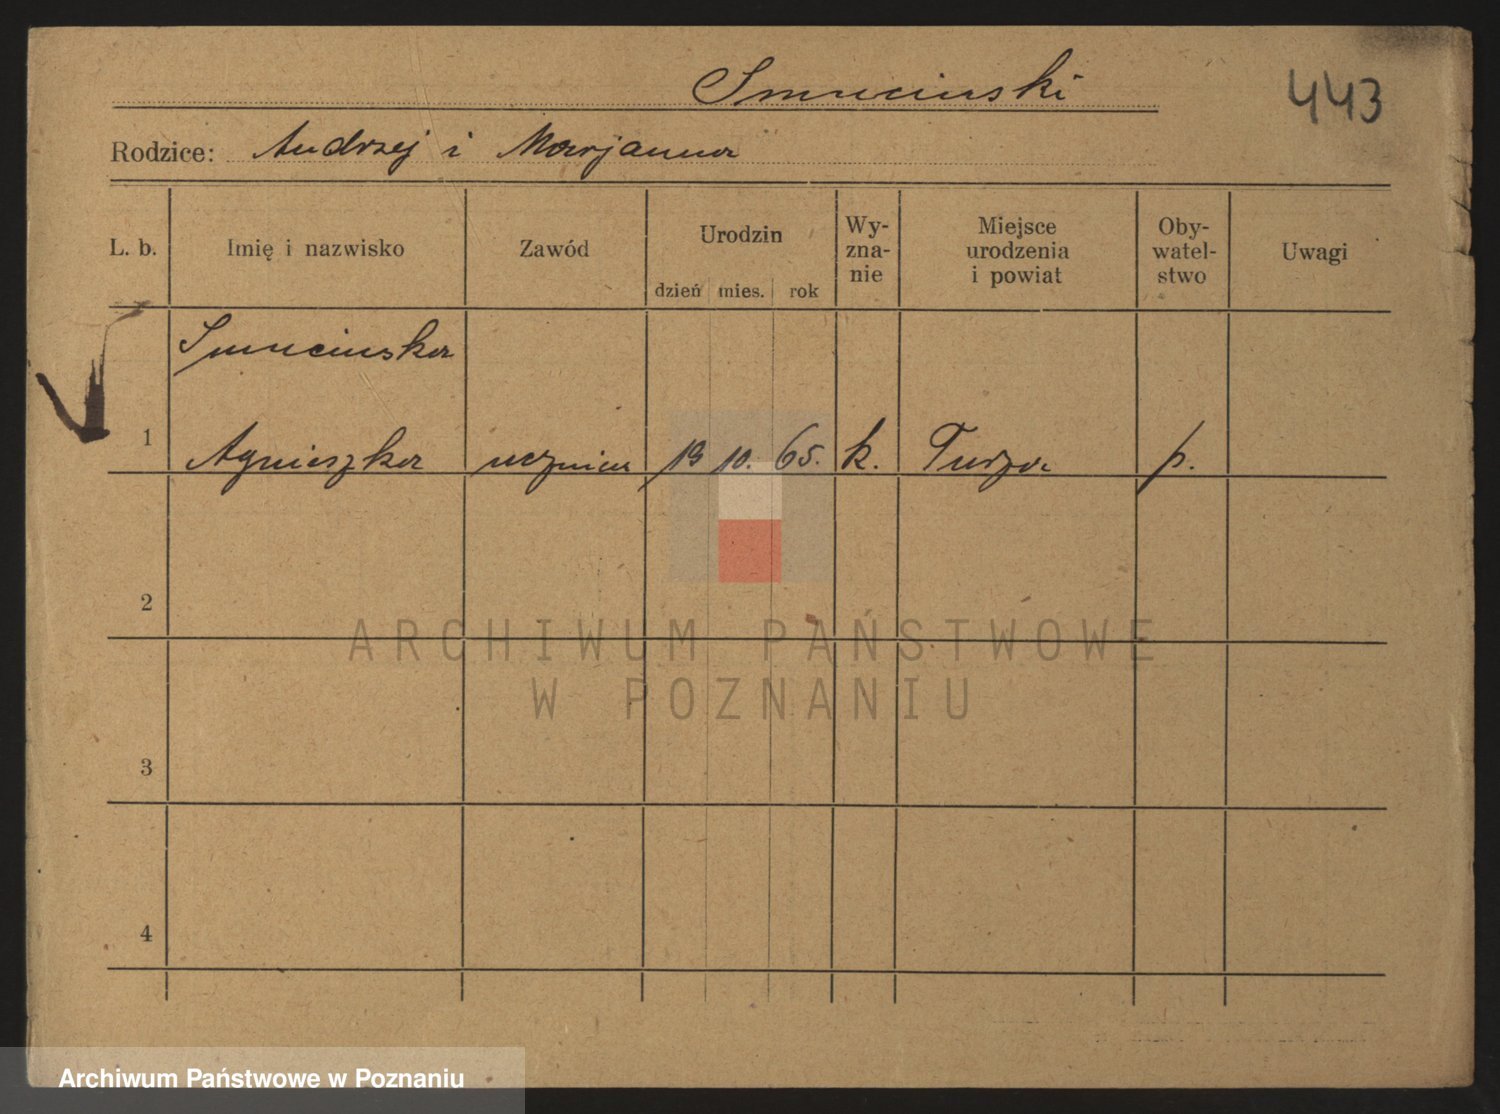 Smuciński
443
Rodzice: Andrzej i Marjanna
L. b. Imię i nazwisko Zawód Urodzin dzień mies. rok Wy-zna-nie Miejsce urodzenia i powiat Oby-watel-stwo Uwagi
Smucinska
1 Agnieszka 19 10. 65. k. Turza p.
2
3
4
ARCHIWUM PAŃSTWOWE
W POZNANIU
Archiwum Państwowe w Poznaniu